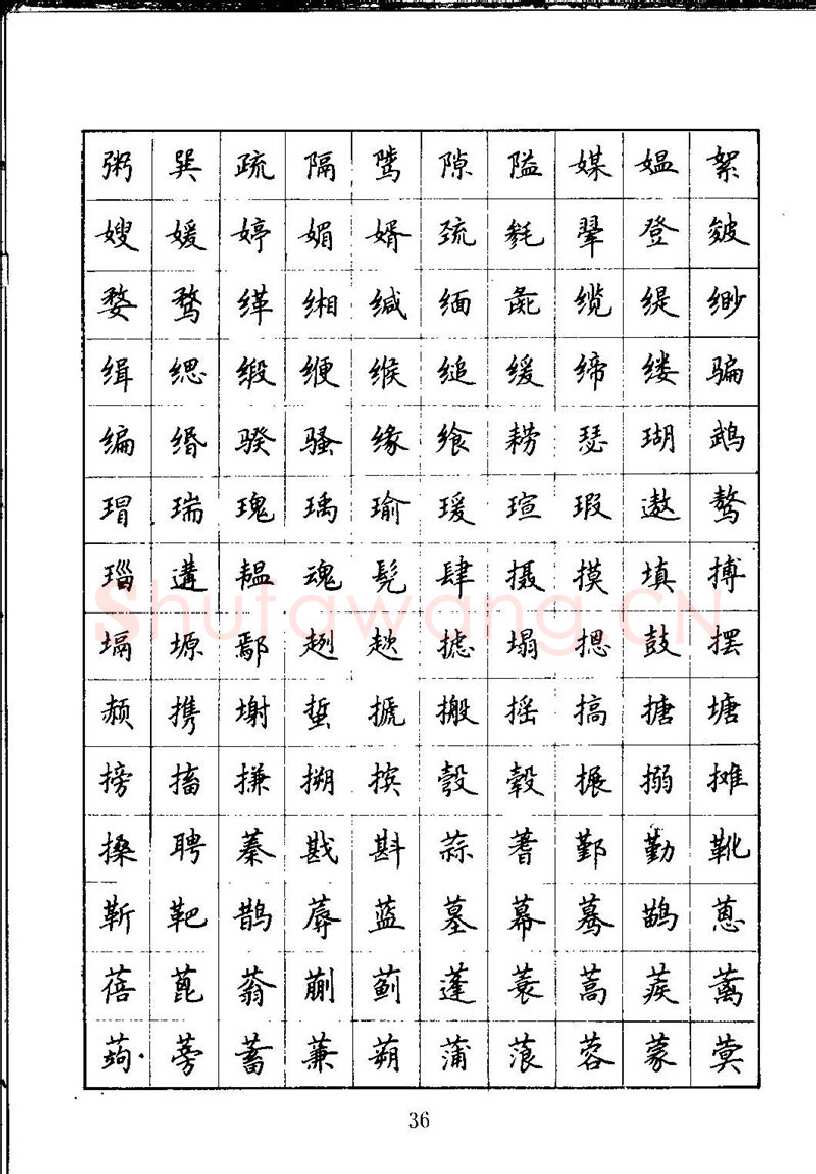 粥 巽 疏 隔 骘 隙 隘 媒 媪 絮
嫂 媛 婷 媚 婿 巯 毵 翚 登 皴
婺 骛 缂 缃 缄 缅 彘 缆 缇 缈
缉 缌 缎 缏 缑 缒 缓 缔 缕 骗
编 缗 骙 骚 缘 飨 耢 瑟 瑚 鹉
瑁 瑞 瑰 瑀 瑜 瑗 瑄 瑕 遨 骜
瑙 遘 韫 魂 髡 肆 摄 摸 填 搏
塥 塬 鄢 趔 趑 摅 塌 摁 鼓 摆
赪 携 塮 蜇 搋 搬 摇 搞 搪 塘
搒 搐 搛 搠 摈 彀 毂 搌 搦 摊
搡 聘 蓁 戡 斟 蒜 蓍 鄞 勤 靴
靳 靶 鹊 蓐 蓝 墓 幕 蓦 鹋 蒽
蓓 蓖 蓊 蒯 蓟 蓬 蓑 蒿 蒺 蓠
蒟 蒡 蓄 蒹 蒴 蒲 蒗 蓉 蒙 蓂
36
Shufawang.CN